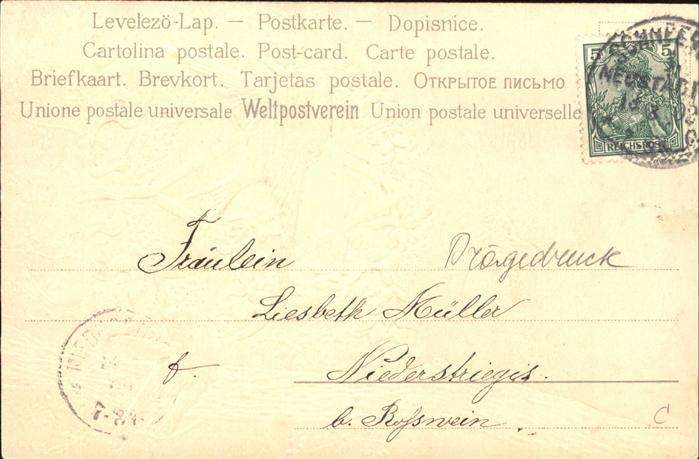 Levelezö-Lap. — Postkarte. — Dopisnice.
Cartolina postale. Post-card. Carte postale.
Briefkaart. Brevkort. Tarjetas postale. Открытое письмо
Unione postale universale Weltpostverein Union postale universelle
5 5
REICHSPOST
SCHNEEB
NEUSTÄDT
Fräulein Prägedruck
Liesbeth Müller
f. Niederstriegis
b. Rosswein.
C
7-8